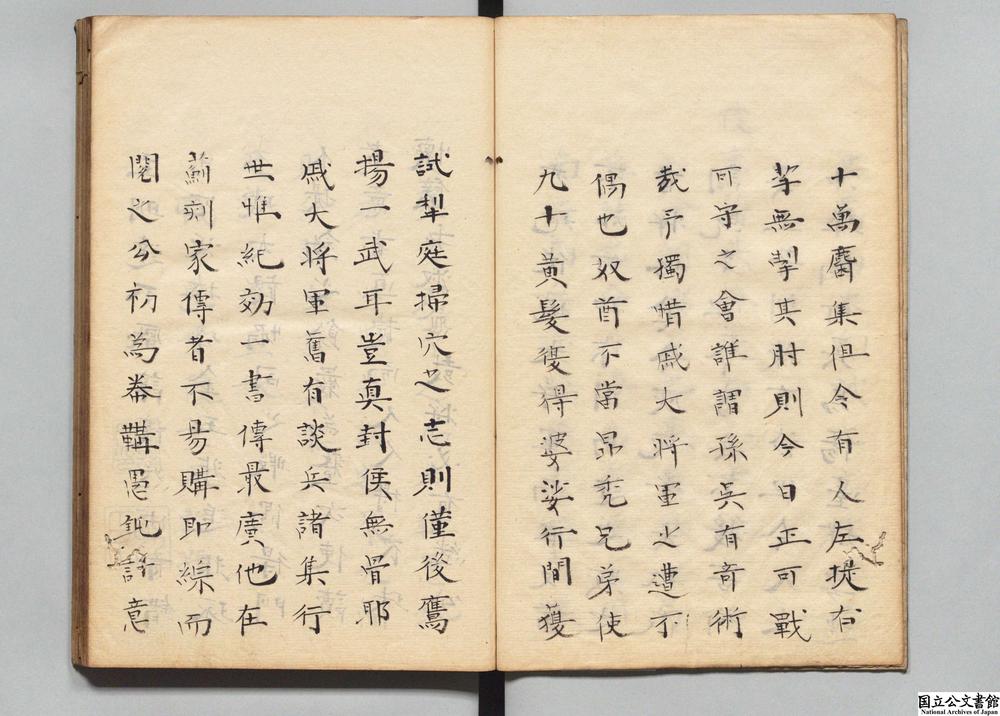 十萬麕集俱令有人左提右
挈無掣其肘則今日正可戰
可守之會誰謂孫吳有竒術
哉予獨惜戚大將軍之遭不
偶也奴酋不常昂禿兄弟使
九十黄髮復得婆娑行間獲
試犁庭掃穴之志則僅後鷹
揚一武耳豈真封侯無骨耶
戚大將軍舊有談兵諸集行
世惟紀効一書傳最廣他在
薊刻家傳者不易購即綜而
閱之公初為帣鞲愚鈍許意
国立公文書館
National Archives of Japan